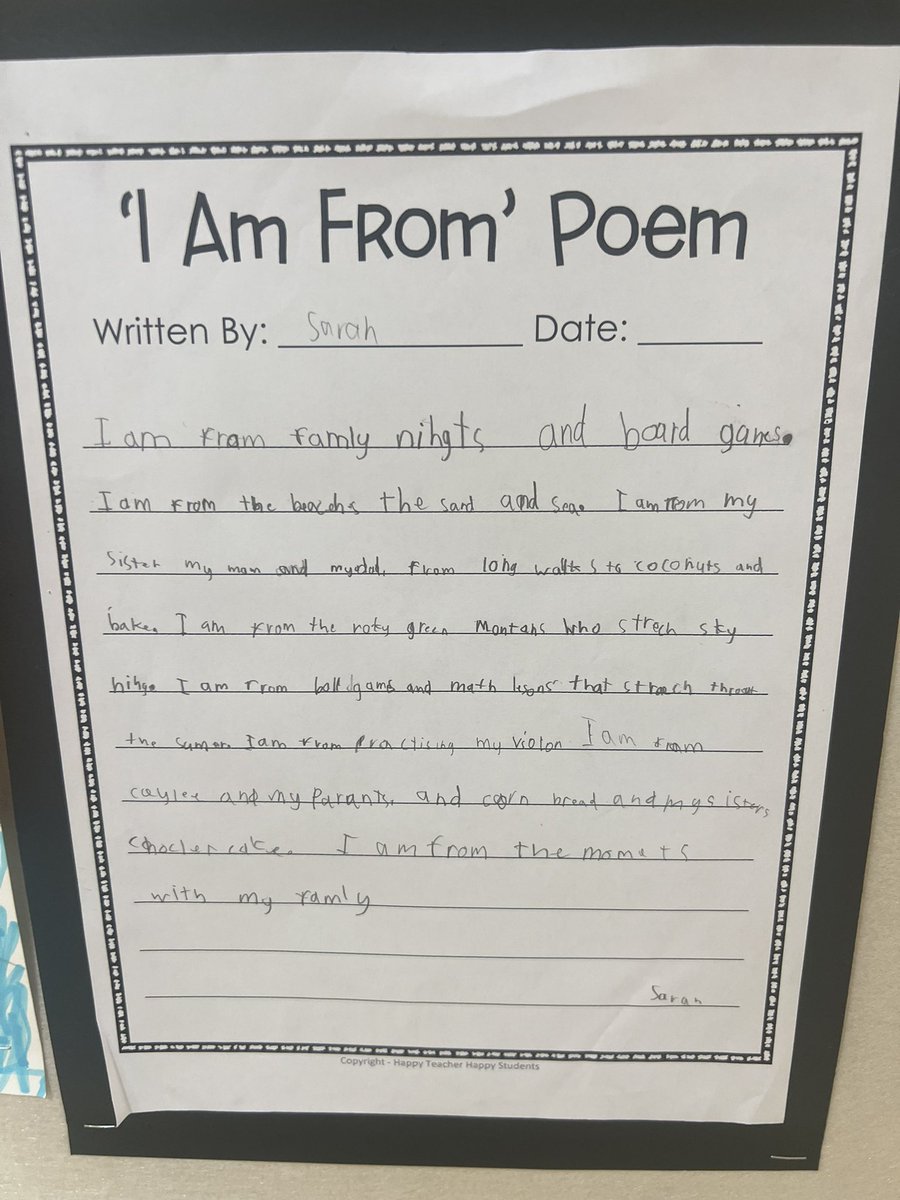 'I Am From' Poem
Written By: Sarah Date:
I am from famly nihgts and board games.
I am from the beachs the sand and sea. I am from my
sister my mom and my dad. from long walks to coconuts and
bake. I am from the roky green Montans who strech sky
hihg. I am from and math lesons that streach
the sumer. I am from practising my violon I am from
caylee and my Parants. and corn bread and my sisters
choclet cake. I am from the momets
with my famly
Sarah
Copyright - Happy Teacher Happy Students